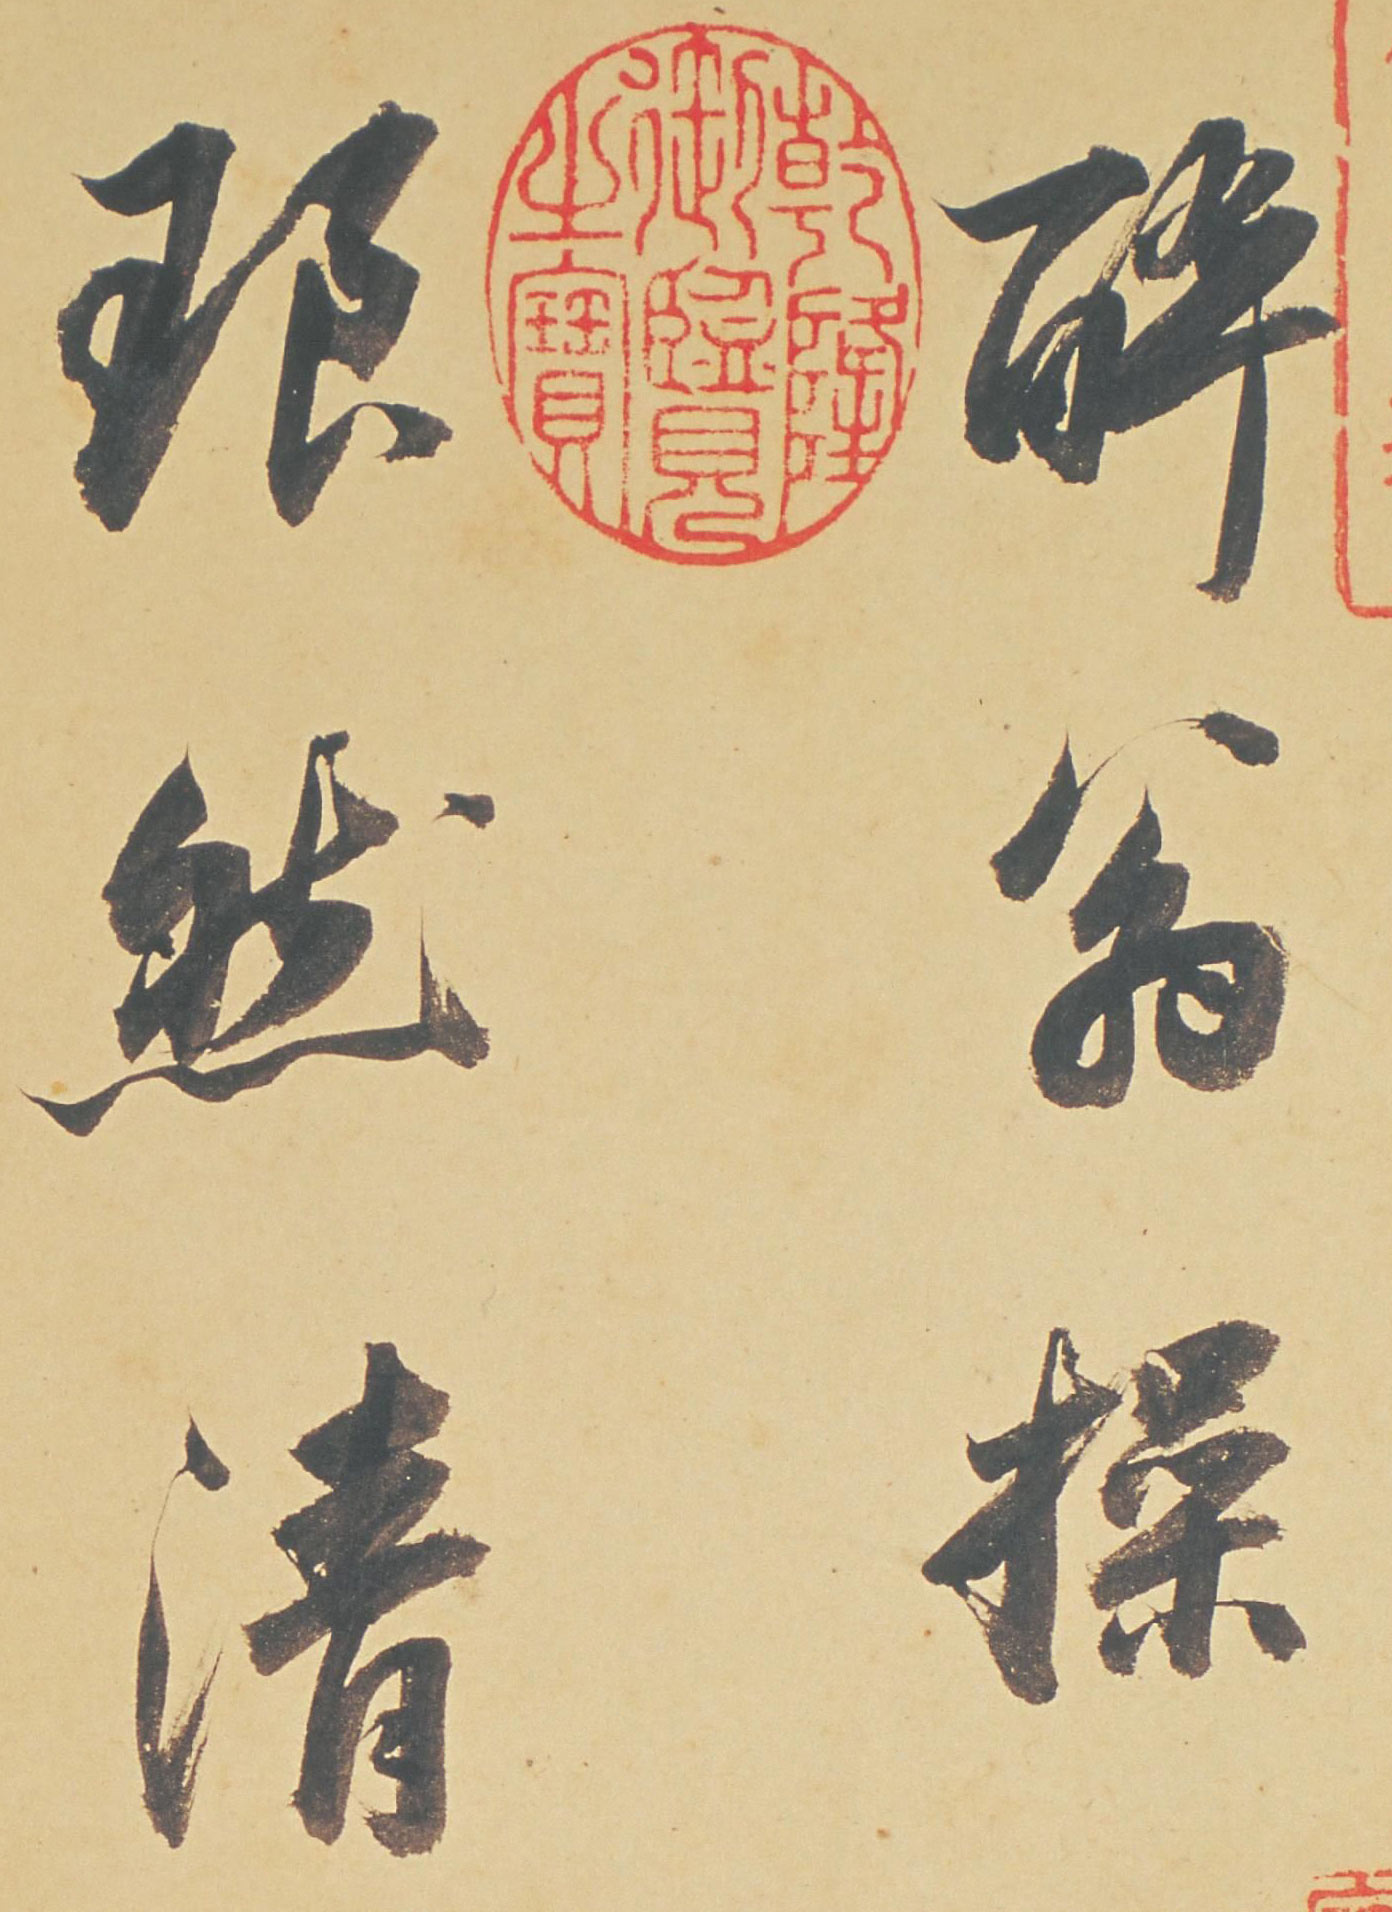 醉翁操
琅然清
乾隆
御覽
之寶